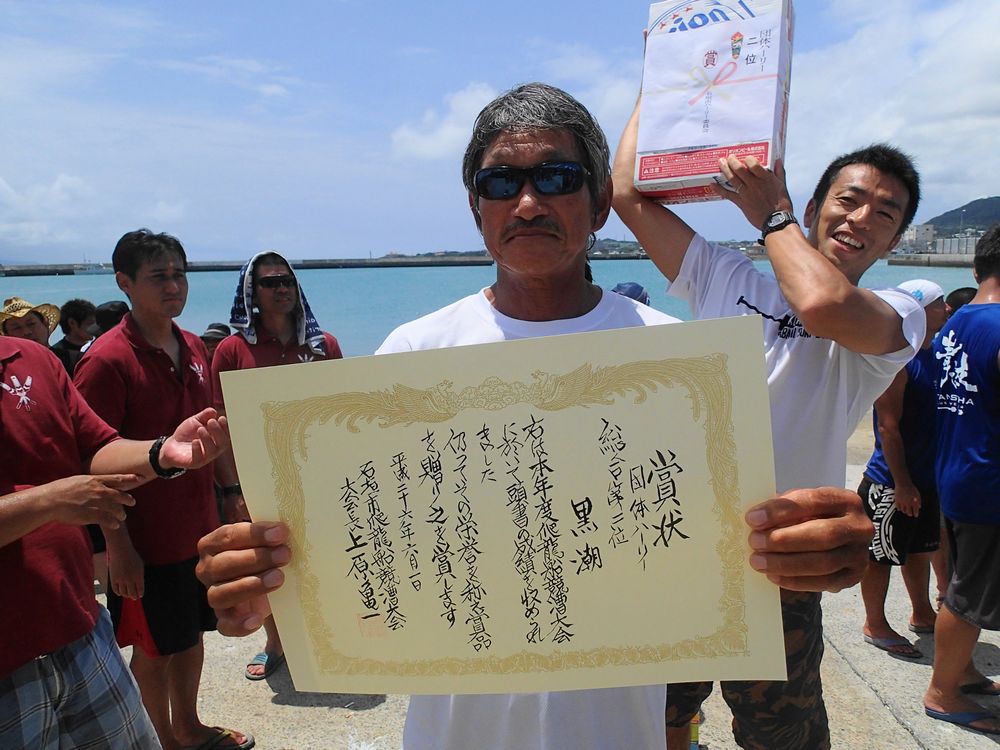 賞状
団体ハーリー
総合第二位
黒潮
右は本年度爬龍船競漕大会
に於いて頭書の成績を収められ
ました
仍ってその栄誉を称え賞品
を贈り之を賞します
平成二十六年六月一日
石垣市爬龍船競漕大会
大会長 上原亀一
団体ハーリー
二位
賞
注意